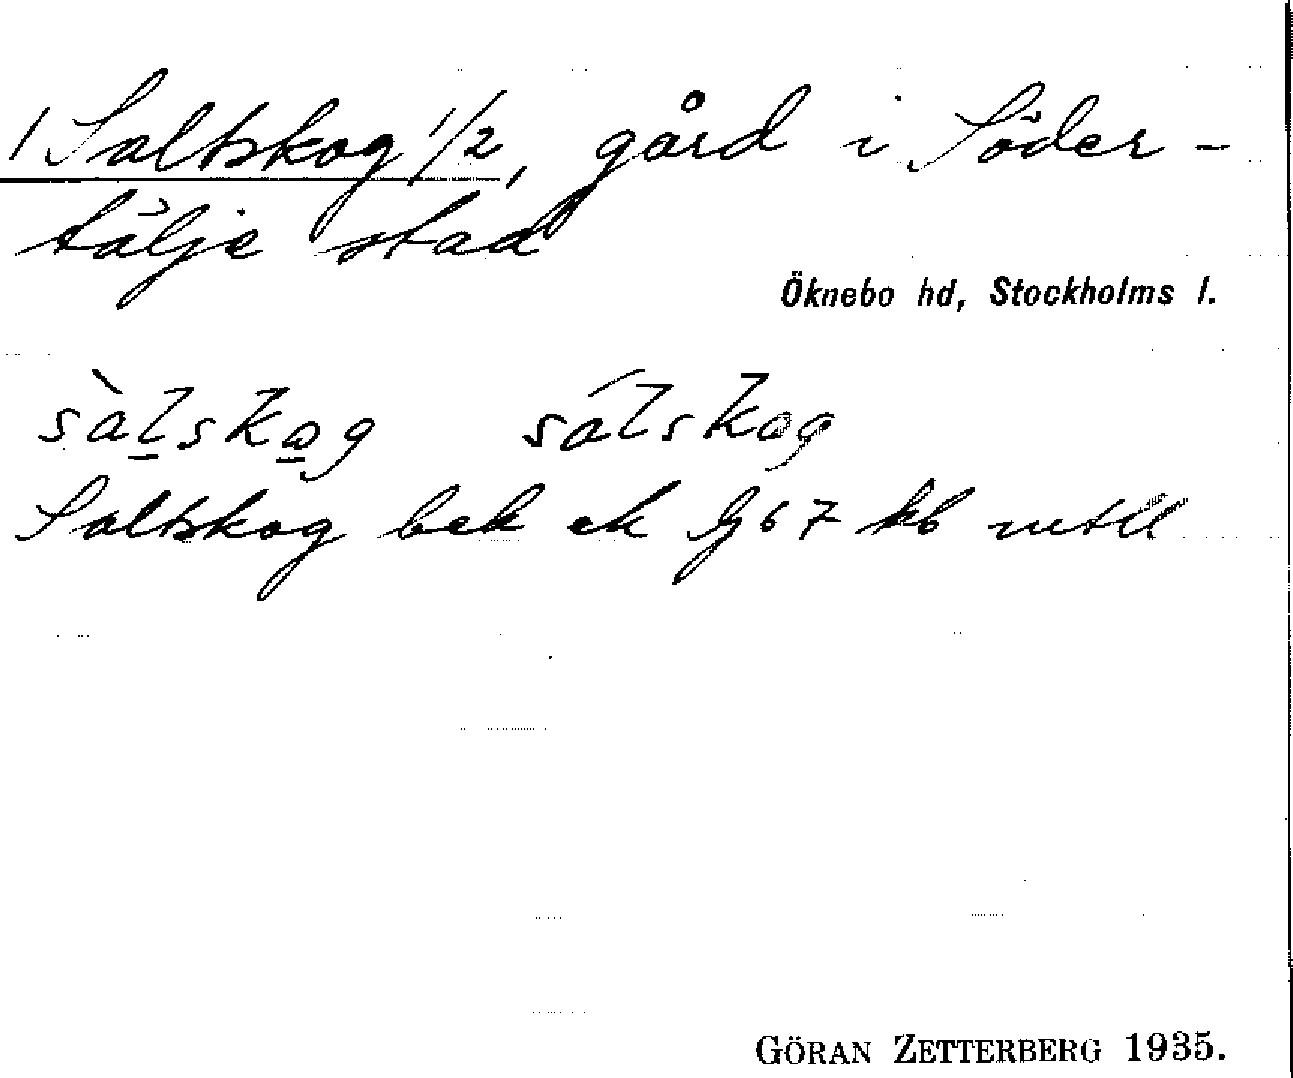 1 Saltskog 1/2, gård i Söder-
tälje stad
Öknebo hd, Stockholms l.
sàlskog sálskog
Saltskog bek ek lj 67 kb
GÖRAN ZETTERBERG 1935.